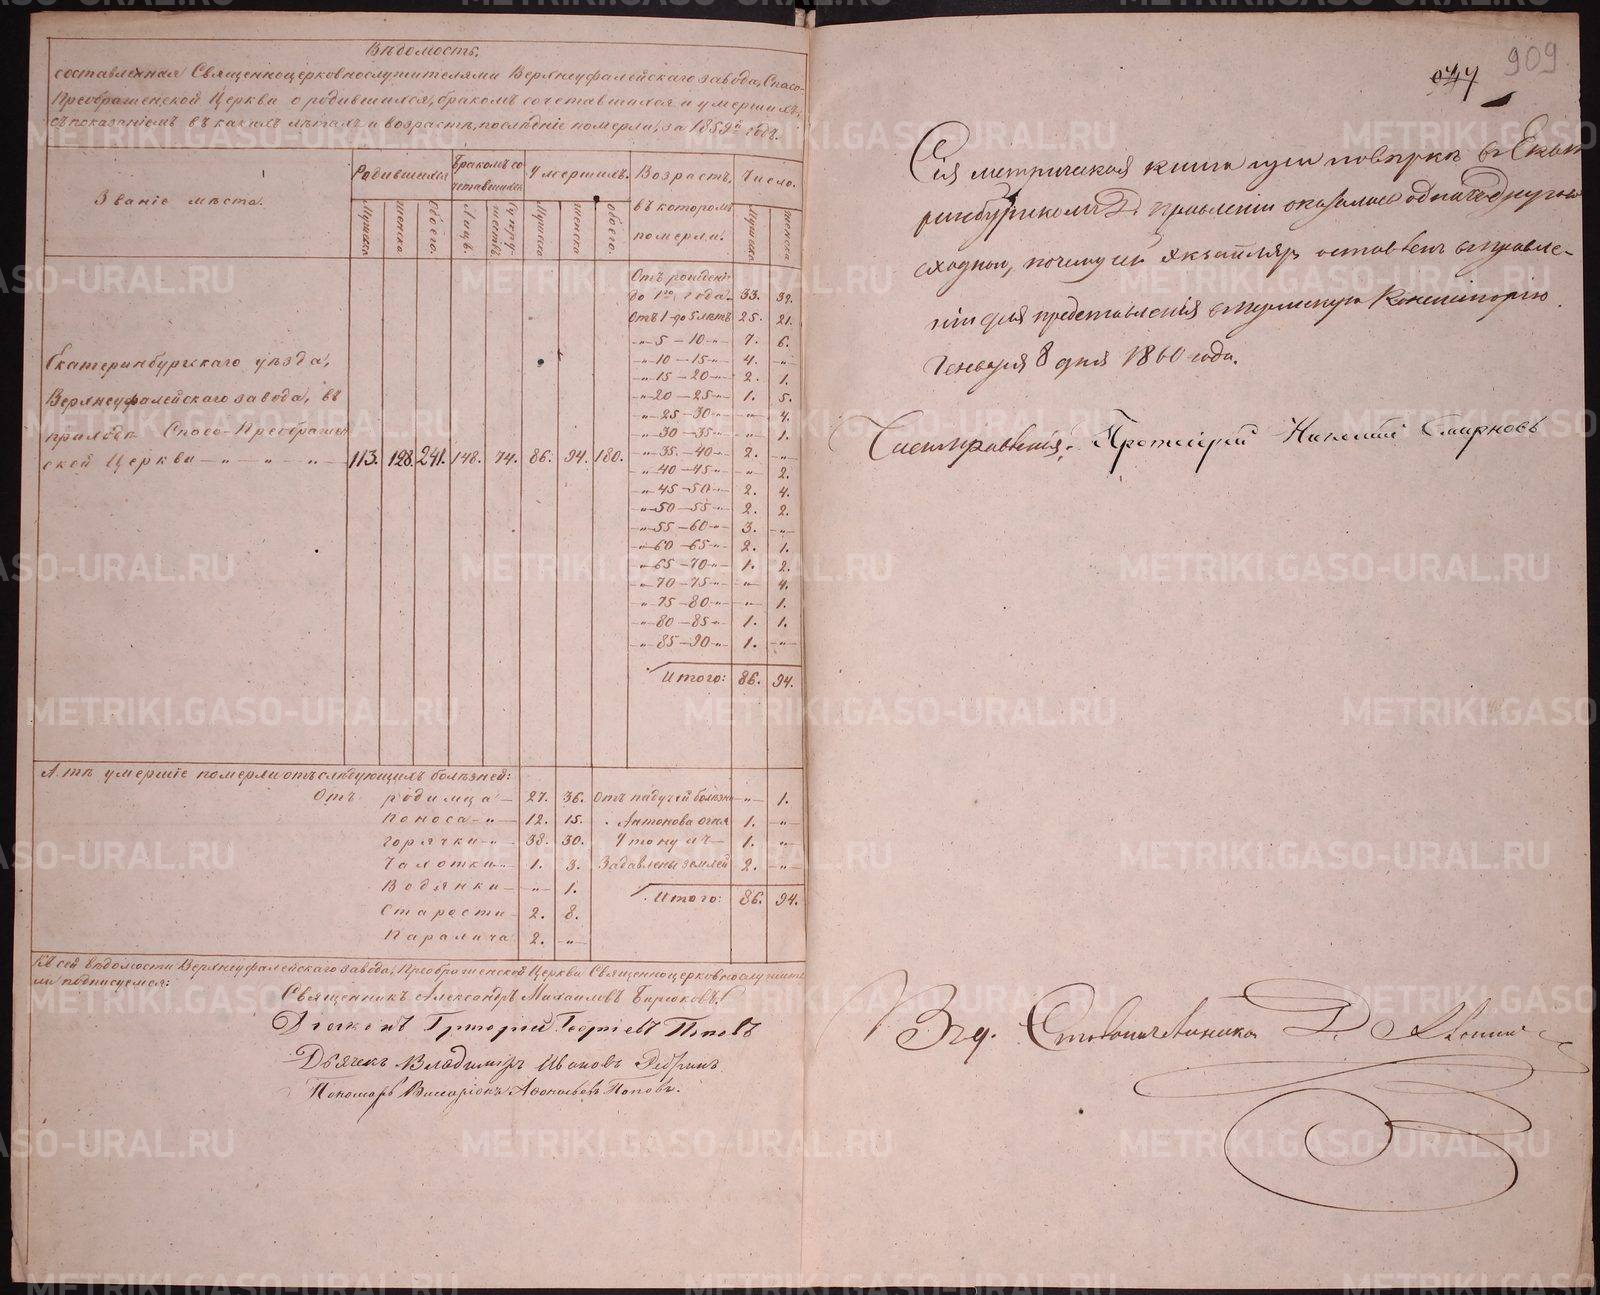 Вѣдомость,
составленная Священноцерковнослужителями Верхнеуфалейскаго завода, Спасо-
Преображенской Церкви о родившихся, бракомъ сочетавшихся и умершихъ,
съ показаніемъ въ какихъ лѣтахъ и возрастѣ, послѣдніе померли, за 1859й годъ.
Званіе мѣста.
Родившихся
Бракомъ со-
четавшихся
Умершихъ.
Возрастъ,
въ которомъ
померли.
Число.
Мужеска
женска
Обоего.
Лицъ.
Супру-
жествъ
Мужеска
женска
обоего.
Мужеска
женска
Екатеринбургскаго уѣзда,
Верхнеуфалейскаго завода, въ
приходѣ Спасо-Преображен
ской Церкви — „ — „ — „ — 113. 128. 241. 148. 74. 86. 94. 180.
Отъ рожденія
до 1го года — 33. 32.
Отъ 1 до 5 лѣтъ 25. 21.
— „ — 5 — 10 — „ — 7. 6.
— „ — 10 — 15 — „ — 4. — „ —
— „ — 15 — 20 — „ — 2. 1.
— „ — 20 — 25 — „ — 1. 5.
— „ — 25 — 30 — „ — — „ — 4.
— „ — 30 — 35 — „ — — „ — 1.
— „ — 35 — 40 — „ — 2. — „ —
— „ — 40 — 45 — „ — — „ — 2.
— „ — 45 — 50 — „ — 2. 4.
— „ — 50 — 55 — „ — 2. 2.
— „ — 55 — 60 — „ — 3. — „ —
— „ — 60 — 65 — „ — 2. 1.
— „ — 65 — 70 — „ — 1. 2.
— „ — 70 — 75 — „ — — „ — 4.
— „ — 75 — 80 — „ — — „ — 1.
— „ — 80 — 85 — „ — 1. 1.
— „ — 85 — 90 — „ — 1. — „ —
Итого: 86. 94.
А тѣ умершіе померли отъ слѣдующихъ болѣзней:
Отъ родимца — 27. 36. Отъ падучей болѣзни — „ — 1.
Поноса — „ — 12. 15. „ Антонова огня 1. — „ —
Горячки — „ — 38. 30. Утонулъ — 1. — „ —
Чахотки — „ — 1. 3. Задавлены землей 2. — „ —
Водянки — — „ — 1.
Итого: 86. 94.
Старости — 2. 8.
Паралича 2. — „ —
Къ сей вѣдомости Верхнеуфалейскаго завода, Преображенской Церкви Священноцерковнослужите
ли подписуемся:
Священникъ Александръ Михаиловъ Бирюковъ.
Діаконъ Григорій Георгіевъ Поповъ
Дьячекъ Владиміръ Ивановъ
Пономарь Виссаріонъ Поповъ.
909
Сія метрическая книга при повѣркѣ въ Екате
ринбургскомъ Д. Правленіи оказалась одна съ другою
сходною, почему сей экземпляръ оставленъ въ правле-
ніи для представленія въ пермскую Консисторію.
Генваря 8 дня 1860 года.
Членъ Правленія: Протоіерей Николай Смирновъ
Въ д. Столоначальника
METRIKI.GASO-URAL.RU